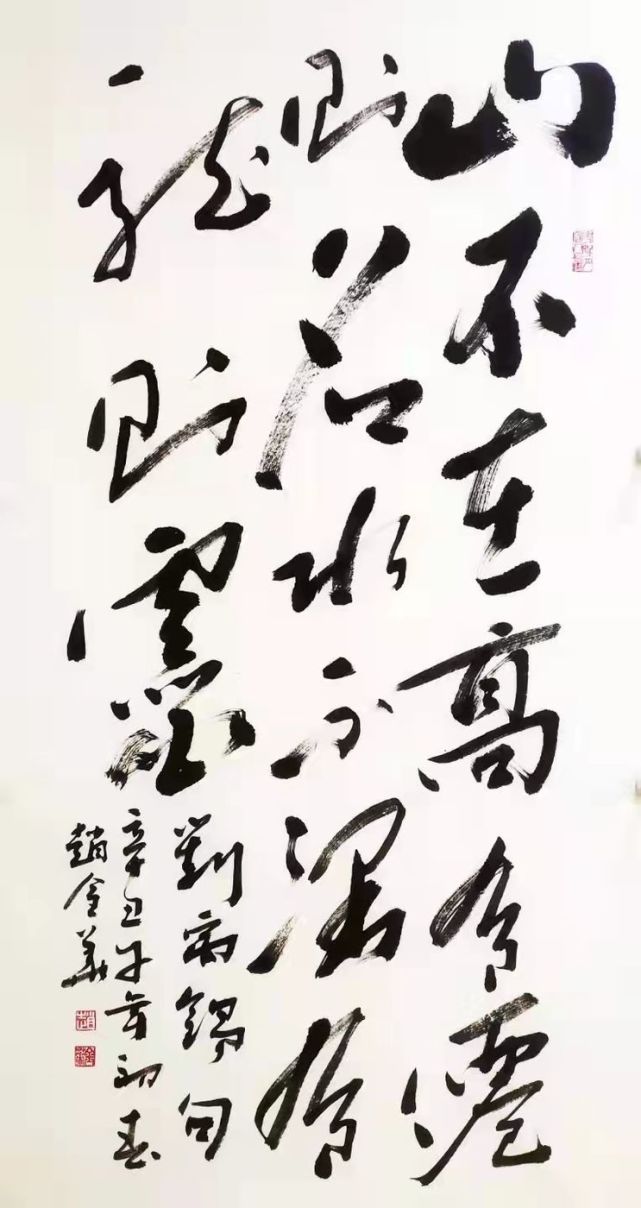 山不在高有僊
則名水不深有
龍則靈
劉禹錫句
辛丑牛年初春
趙金